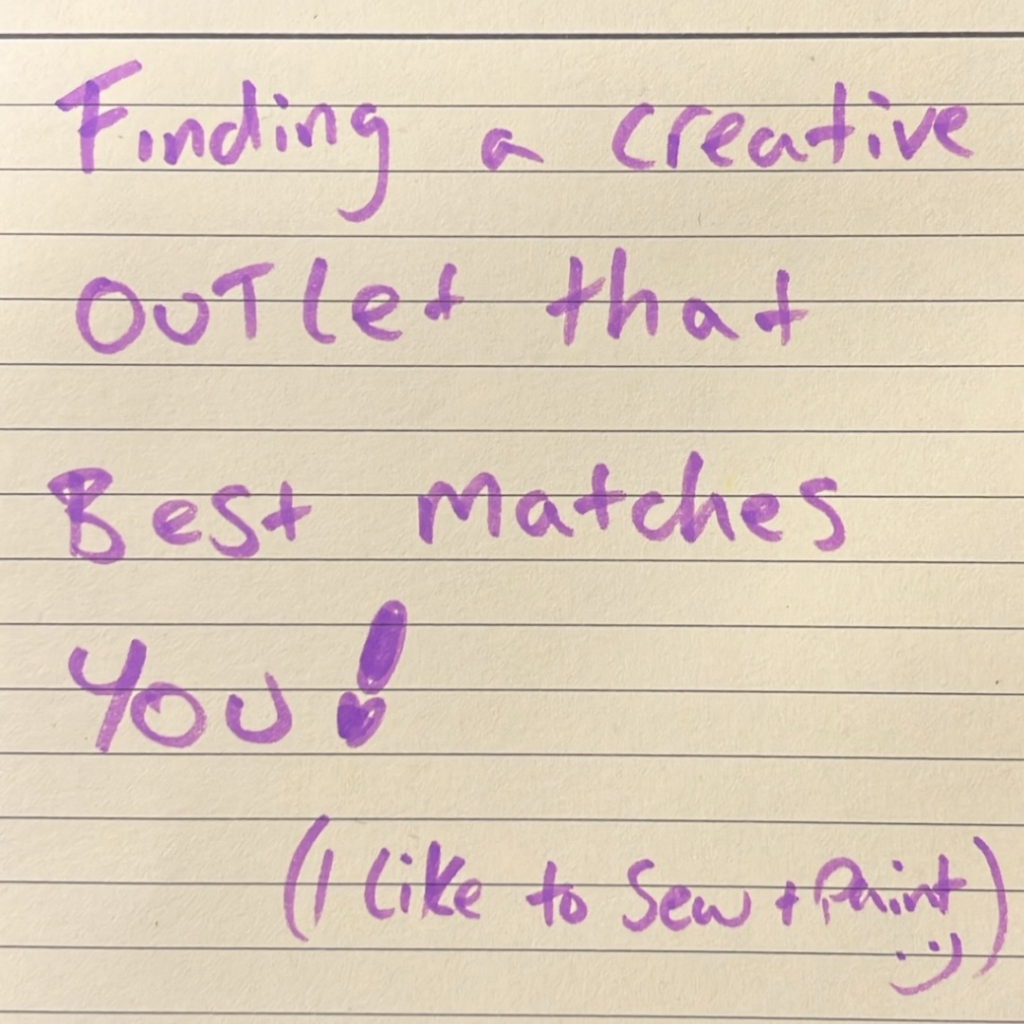 Finding a creative
OUTlet that
Best Matches
YOU!
(I like to Sew + Paint)
:)